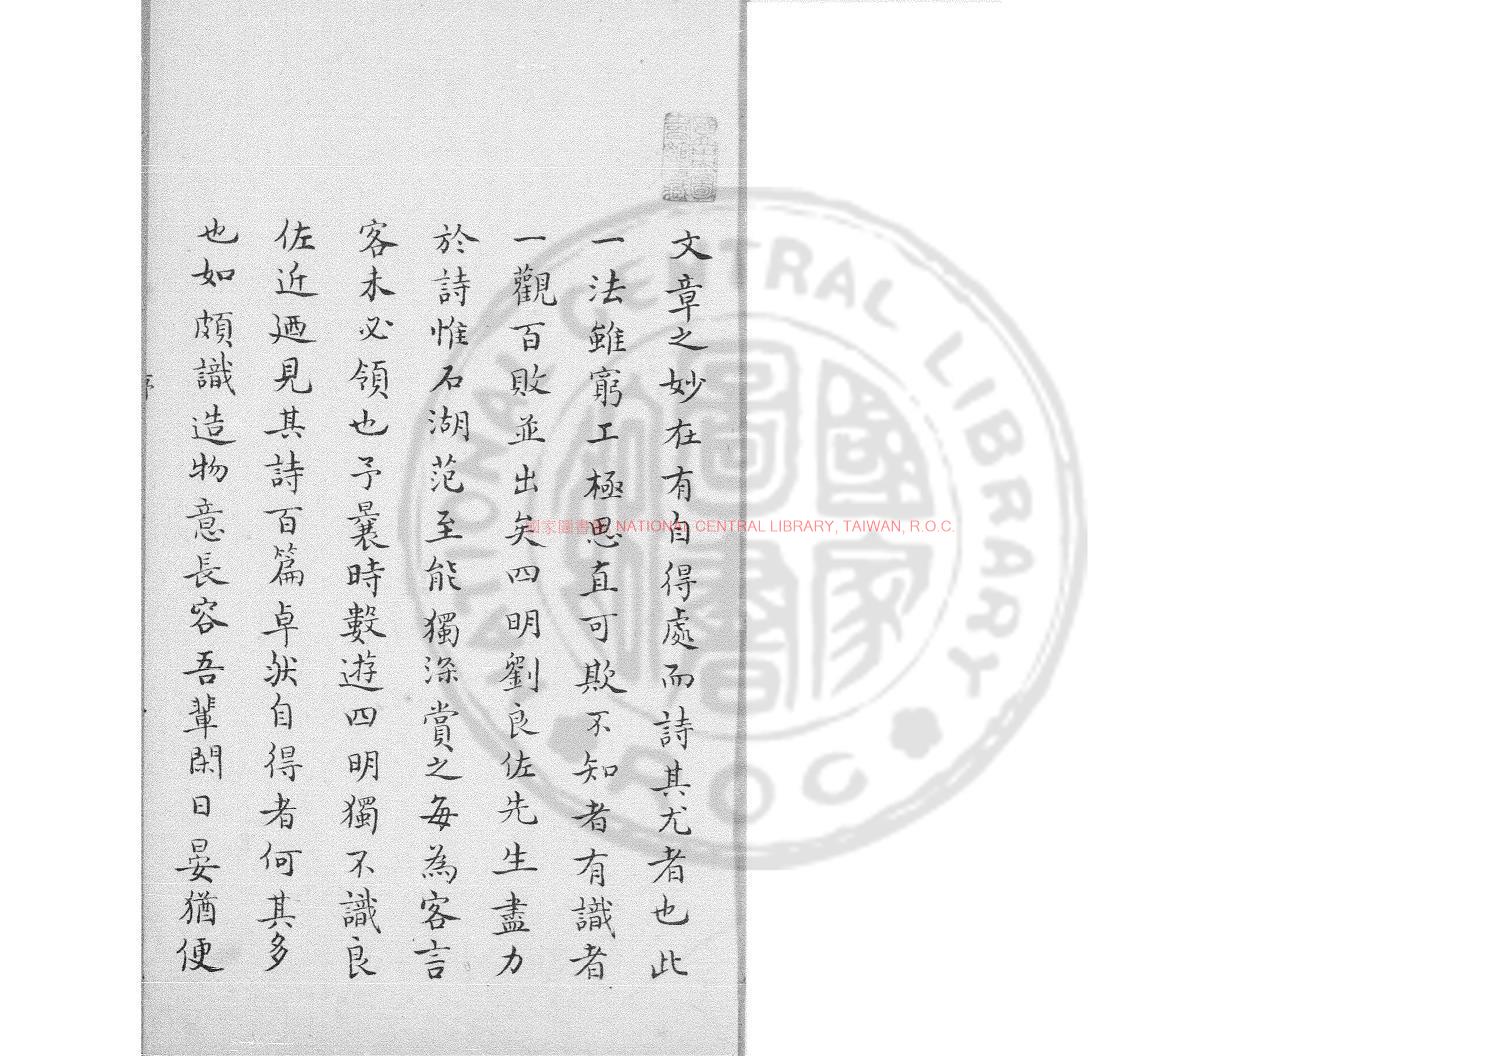 文章之妙在有自得處而詩其尤者也此
一法雖窮工極思直可欺不知者有識者
一觀百敗並出矣四明劉良佐先生盡力
於詩惟石湖范至能獨深賞之每為客言
客未必領也予曩時數遊四明獨不識良
佐近廼見其詩百篇卓然自得者何其多
也如頗識造物意長容吾輩閑日晏猶便
國家圖書館, NATIONAL CENTRAL LIBRARY, TAIWAN, R.O.C.
NATIONAL CENTRAL LIBRARY
ROC
國家圖書